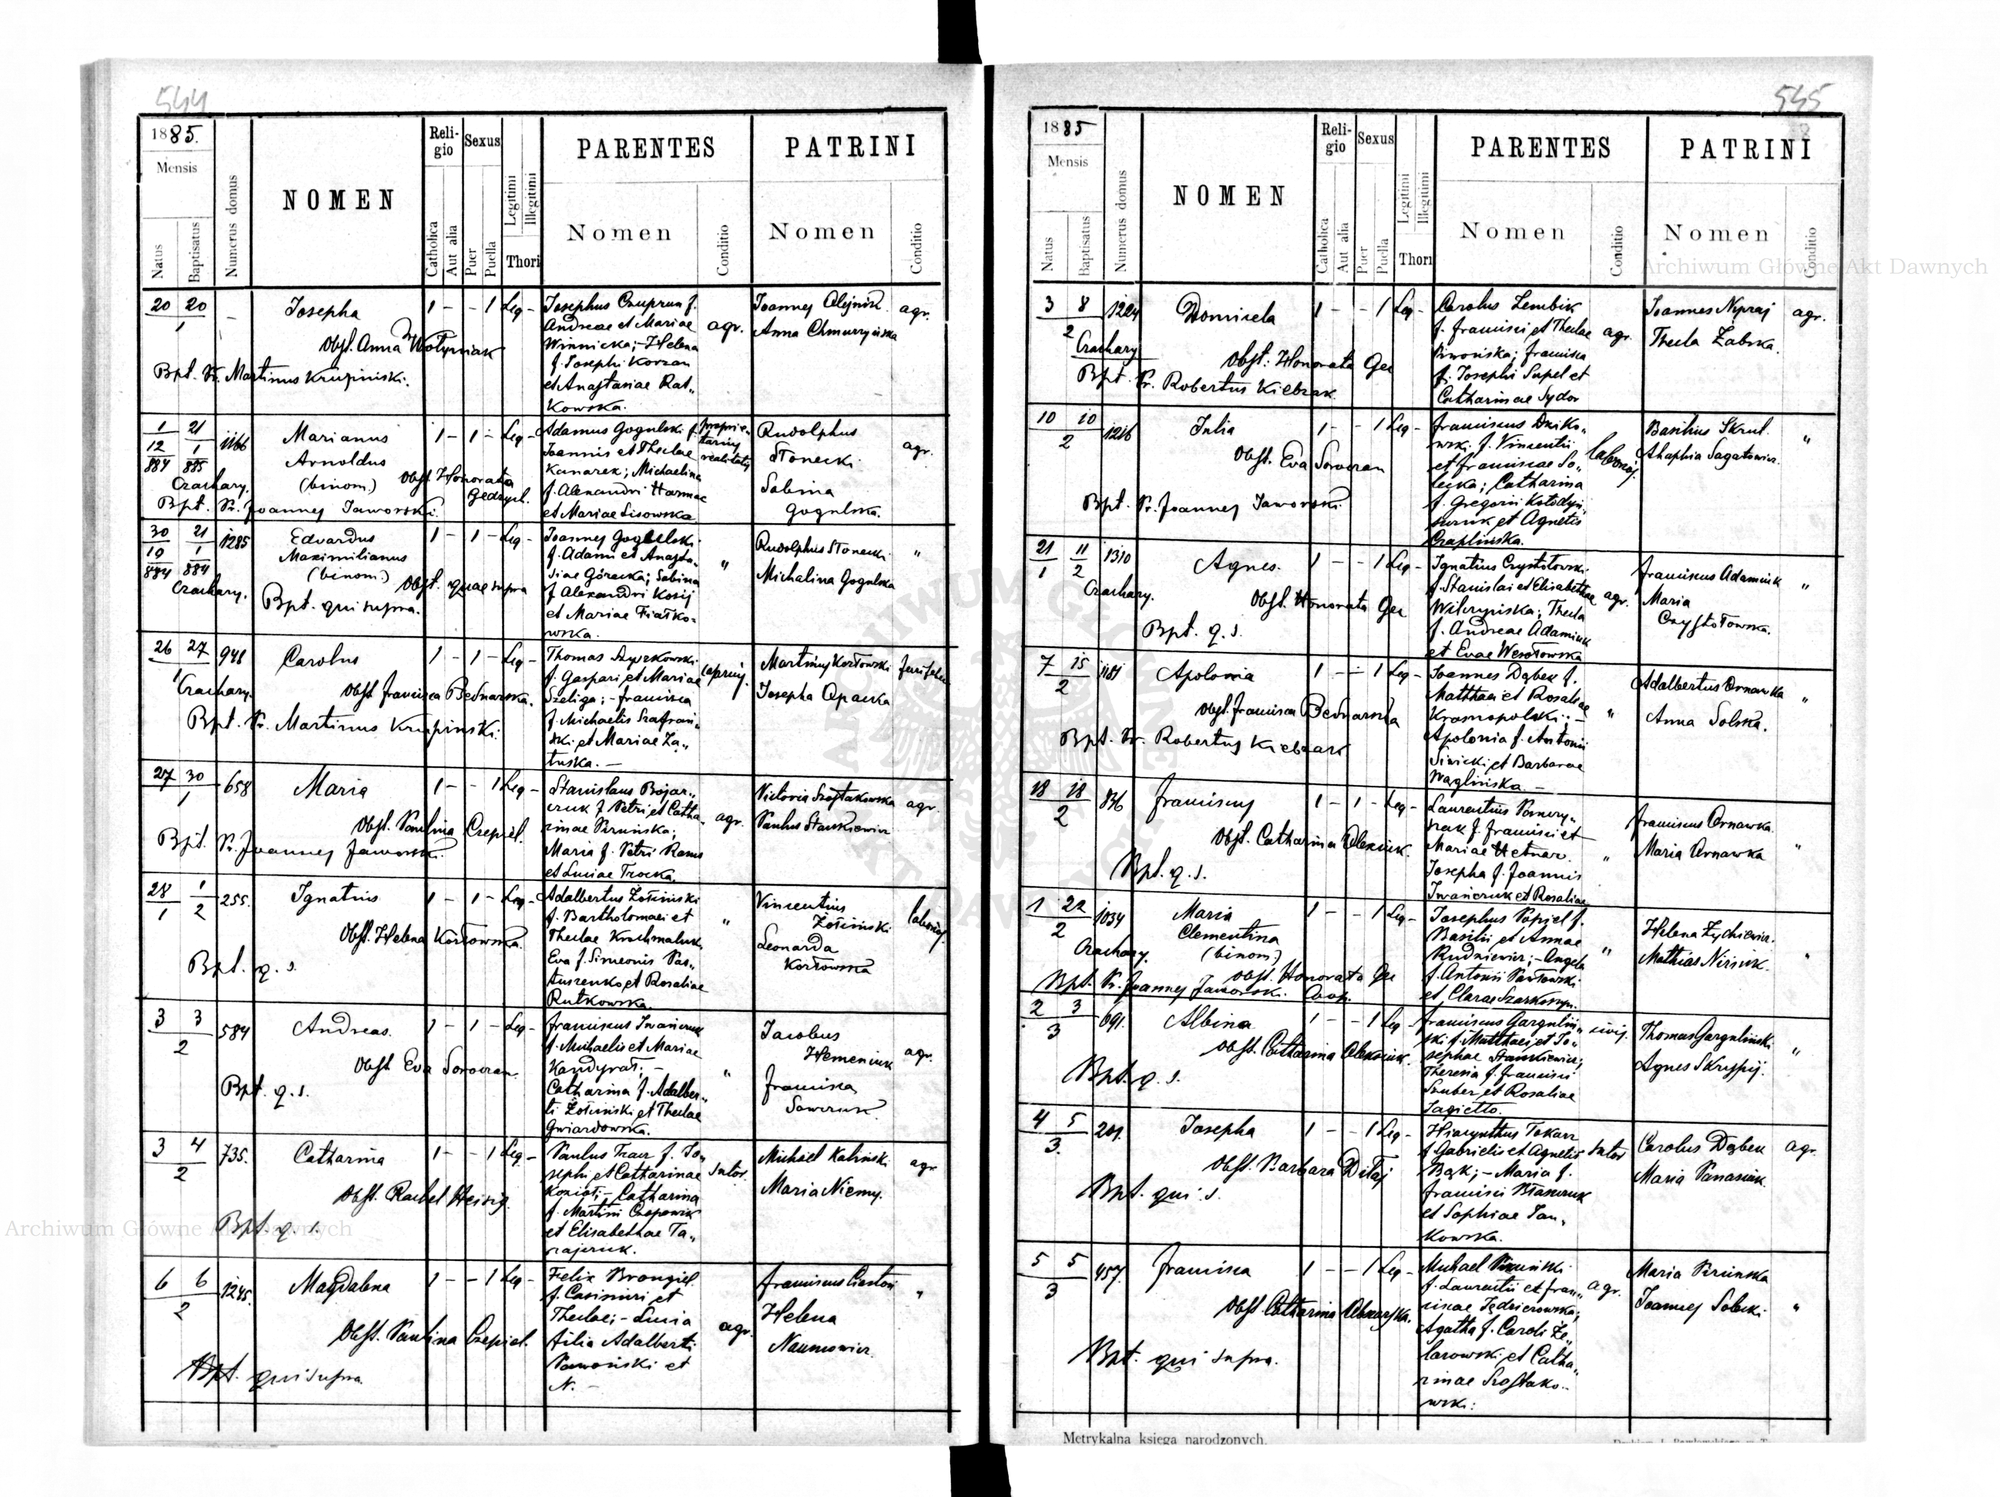 544
1885.
Mensis
Natus
Baptisatus
Numerus domus
NOMEN
Reli-
gio
Catholica
Aut alia
Sexus
Puer
Puella
Legitimi
Illegitimi
Thori
PARENTES
Nomen
Conditio
PATRINI
Nomen
Conditio
20 20 – Josepha 1 – – 1 Leg –
1
Obst. Anna Wołyniak
Bpt. Vr. Martinus Krupinski.
Josephus Czuprun f.
Andreae et Mariae
Winnicka; – Helena
f. Josephi Korzan
et Anastasiae Rat„
kowska.
agr.
Joannes Olejnik agr.
Anna Chmurzyńska
1 21 1166 Marianus 1 – 1 – Leg –
12 1 Arnoldus
884 885 (binom.)
Obst. Honorata
Czachary. Gedzyel.
Bpt. Vr. Joannes Jaworski.
Adamus Gogulski f.
Joannis et Theclae
Kanarek; Michaelina
f. Alexandri Harmac
et Mariae Lisowska
proprie„
tarius
realitatis
Rudolphus agr.
Słonecki
Sabina
Gogulska.
30 21 1285 Edvardus 1 – 1 – Leg –
19 1 Maximilianus
884 884 (binom.)
Czachary. Obst. quae supra
Bpt. qui supra.
Joannes Gogulski
f. Adami et Anasta„
siae Góracka; Sabina
f. Alexandri Kosij
et Mariae Fiałko„
wska.
"
Rudolphus Słonecki "
Michalina Gogulska
26 27 948 Carolus 1 – 1 – Leg –
1
Czachary. Obst. Francisca Bednarska.
Bpt. Vr. Martinus Krupinski.
Thomas Szyszkowski
f. Gaspari et Mariae
Szeliga; – Francisca
f. Michaelis Szafrań„
ski et Mariae Za„
łuska. –
Martinus Kozłowski
Josepha Opacka
27 30 658 Maria 1 – – 1 Leg –
1
Obst. Paulina Czepiel.
Bpt. Vr. Joannes Jaworski.
Stanislaus Bojar„
czuk f. Petri et Catha„
rinae Piruńska;
Maria f. Petri Rams
et Luciae Trocka.
agr.
Victoria Szostakowska agr.
Paulus Stankiewicz
28 1 255. Ignatius 1 – 1 – Leg –
1 2
Obst. Helena Kozłowska.
Bpt. q. s.
Adalbertus Zołciński
f. Bartholomaei et
Theclae Krochmaluk
Eva f. Simeonis Pas„
tuszenko et Rosaliae
Rutkowska.
"
Vincentius
Zołciński
Leonarda
Kozłowska
3 3 584 Andreas. 1 – 1 – Leg –
2
Obst. Eva Soroczan.
Bpt. q. s.
Franciscus Iwańczuk
f. Michaelis et Mariae
Kandyrał; –
Catharina f. Adalber„
ti Zołciński et Theclae
Gwiazdowska.
"
Jacobus
Hemeniuk agr.
Francisca
Sawczuk
3 4 735. Catharina 1 – – 1 Leg –
2
Obst. Rachel Heisig.
Bpt. q. s.
Paulus Tracz f. Jo„
sephi et Catharinae
Konioł; – Catharina
f. Martini Czopowik
et Elisabethae Ta„
rajczuk.
sutor.
Michael Kaliński agr
Maria Niemy.
6 6 1245. Magdalena 1 – – 1 Leg –
2
Obst. Paulina Czepiel.
Bpt. qui supra.
Felix Brongiel
f. Casimiri et
Theclae; – Lucia
filia Adalberti
et
N. –
agr.
Franciscus "
Helena
Naumowicz.
545
1885
Mensis
Natus
Baptisatus
Numerus domus
NOMEN
Reli-
gio
Catholica
Aut alia
Sexus
Puer
Puella
Legitimi
Illegitimi
Thori
PARENTES
Nomen
Conditio
PATRINI
Nomen
Conditio
3 8 1224 Domicela 1 – – 1 Leg –
2
Czachary
Obst. Honorata Ge
Bpt. Vr. Robertus Kiebzak.
Carolus Lembik
f. Francisci et Theclae
Piwońska; Francisca
f. Josephi Supel et
Catharinae Sydor
agr.
Joannes Nyczaj agr.
Thecla Zabska.
10 10 1216 Julia 1 – – 1 Leg –
2
Obst. Eva Soroczan
Bpt. Vr. Joannes Jaworski.
Franciscus Dziko„
wski f. Vincentii
et Franciscae So„
lecka; Catharina
f. Gregorii Kołodyj„
czuk et Agnetis
Czaplińska.
Basilius Skrut "
Ahaphia Sagatowicz.
21 11 1310 Agnes. 1 – – 1 Leg –
1 2
Czachary.
Obst. Honorata Ge
Bpt. q. s.
Ignatius Czystołowski
f. Stanislai et Elisabethae
Wilczyńska; Thecla
f. Andreae Adamiuk
et Evae Wesołowska
agr.
Franciscus Adamiuk "
Maria
Czystołowska.
7 15 1181 Apolonia 1 – – 1 Leg –
2
Obst. Francisca Bednarska
Bpt. Vr. Robertus Kiebzak
Joannes Dąbek f.
Matthaei et Rosaliae
Krasnopolski; –
Apolonia f. Antonii
Siwicki et Barbarae
Waglińska. –
"
Adalbertus Ornawka "
Anna Solska.
18 18 836 Franciscus 1 – 1 – Leg –
2
Obst. Catharina Oleksiuk.
Bpt. q. s.
Laurentius Pomery„
szak f. Francisci et
Mariae Hetnar.
Josepha f. Joannis
Iwańczuk et Rosaliae
"
Franciscus Ornawka. "
Maria Ornawka
1 22 1034 Maria 1 – – 1 Leg –
2 Clementina
Czachary. (binom)
Obst. Honorata Ge
Bpt. Vr. Joannes Jaworski. Coop.
Josephus Popiel f.
Basilii et Annae
Rudniewicz; – Angela
f. Antonii Pawłowski
et Clarae
"
Helena Zychiewicz. "
Mathias Nirsiuk.
2 3 691. Albina 1 – – 1 Leg –
3
Obst. Catharina Oleksiuk.
Bpt. q. s.
Franciscus Gargulin„
ski f. Matthaei et Jo„
sephae Stankiewicz;
Theresia f. Francisci
Szuber et Rosaliae
Jagiełło.
civis.
Thomas Gargulinski "
Agnes Skrypij.
4 5 201. Josepha 1 – – 1 Leg –
3.
Obst. Barbara Diłaj
Bpt. qui s.
Hiacynthus Tokarz
f. Gabrielis et Agnetis
Bąk; – Maria f.
Francisci Błaszczuk
et Sophiae Jan„
kowska.
sutor
Carolus Dąbek agr.
Maria Panasiuk.
5 5 457. Francisca 1 – – 1 Leg –
3
Obst. Catharina
Bpt. qui supra.
Michael Piruński
f. Laurentii et Fran„
ciscae Jędrzejowska,
Agatha f. Caroli Ze„
larowski et Catha„
rinae Szostako„
wski.
agr.
Maria Pirunska
Joannes Solecki "
Metrykalna księga narodzonych.
Archiwum Główne Akt Dawnych
Archiwum Główne Akt Dawnych
ARCHIWUM GŁÓWNE AKT DAWNYCH